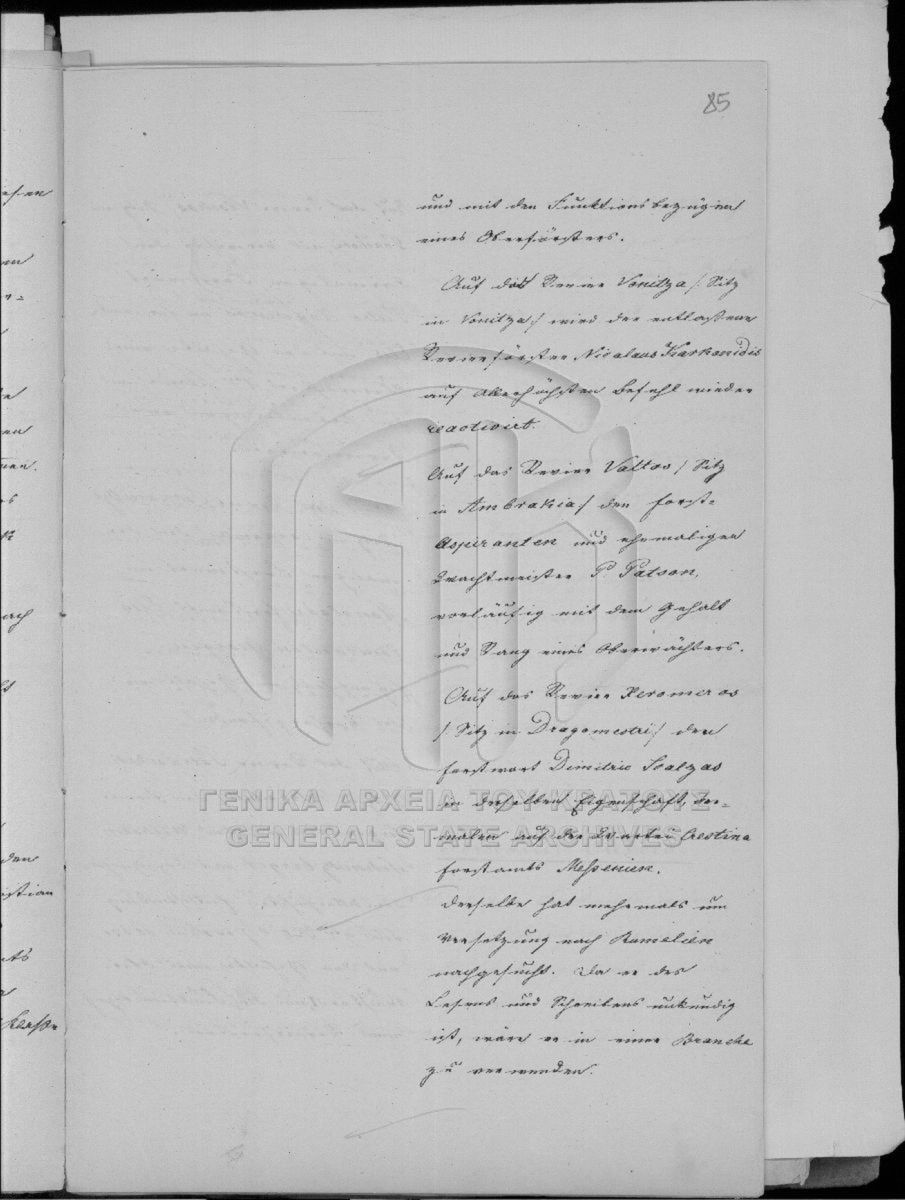 85
und mit den Funktionsbezügen
eines Oberförsters.
Auf das Revier Vonitza /: Sitz
in Vonitza :/ wird der entlassene
Revierförster Nicolaus Karkonidis
auf Allerhöchsten Befehl wieder
reactivirt.
Auf das Revier Valtos /: Sitz
in Ambrakia :/ den Forst-
Aspiranten und ehemaligen
Wachtmeister P. Patson,
vorläufig mit dem Gehalt
und Rang eines Oberwächters.
Auf das Revier Xeromeros
/: Sitz in Dragomestri :/ den
Forstwart Dimitrio Scalzas
in derselben Eigenschaft, der-
malen auf der Warte Crestina
Forstamts Meßenien.
Derselbe hat mehrmals um
Versetzung nach Rumelien
nachgesucht. Da er des
Lesens und Schreibens unkundig
ist, wäre er in einer Branche
zu verwenden.
ΓΕΝΙΚΑ ΑΡΧΕΙΑ ΤΟΥ ΚΡΑΤΟΥΣ
GENERAL STATE ARCHIVES